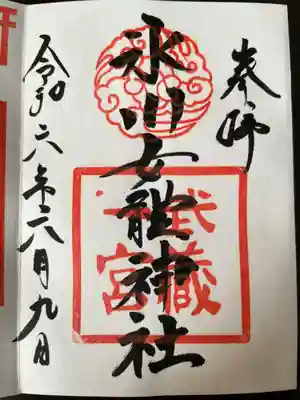 奉拝
氷川女體神社
武蔵
一宮
令和六年六月九日